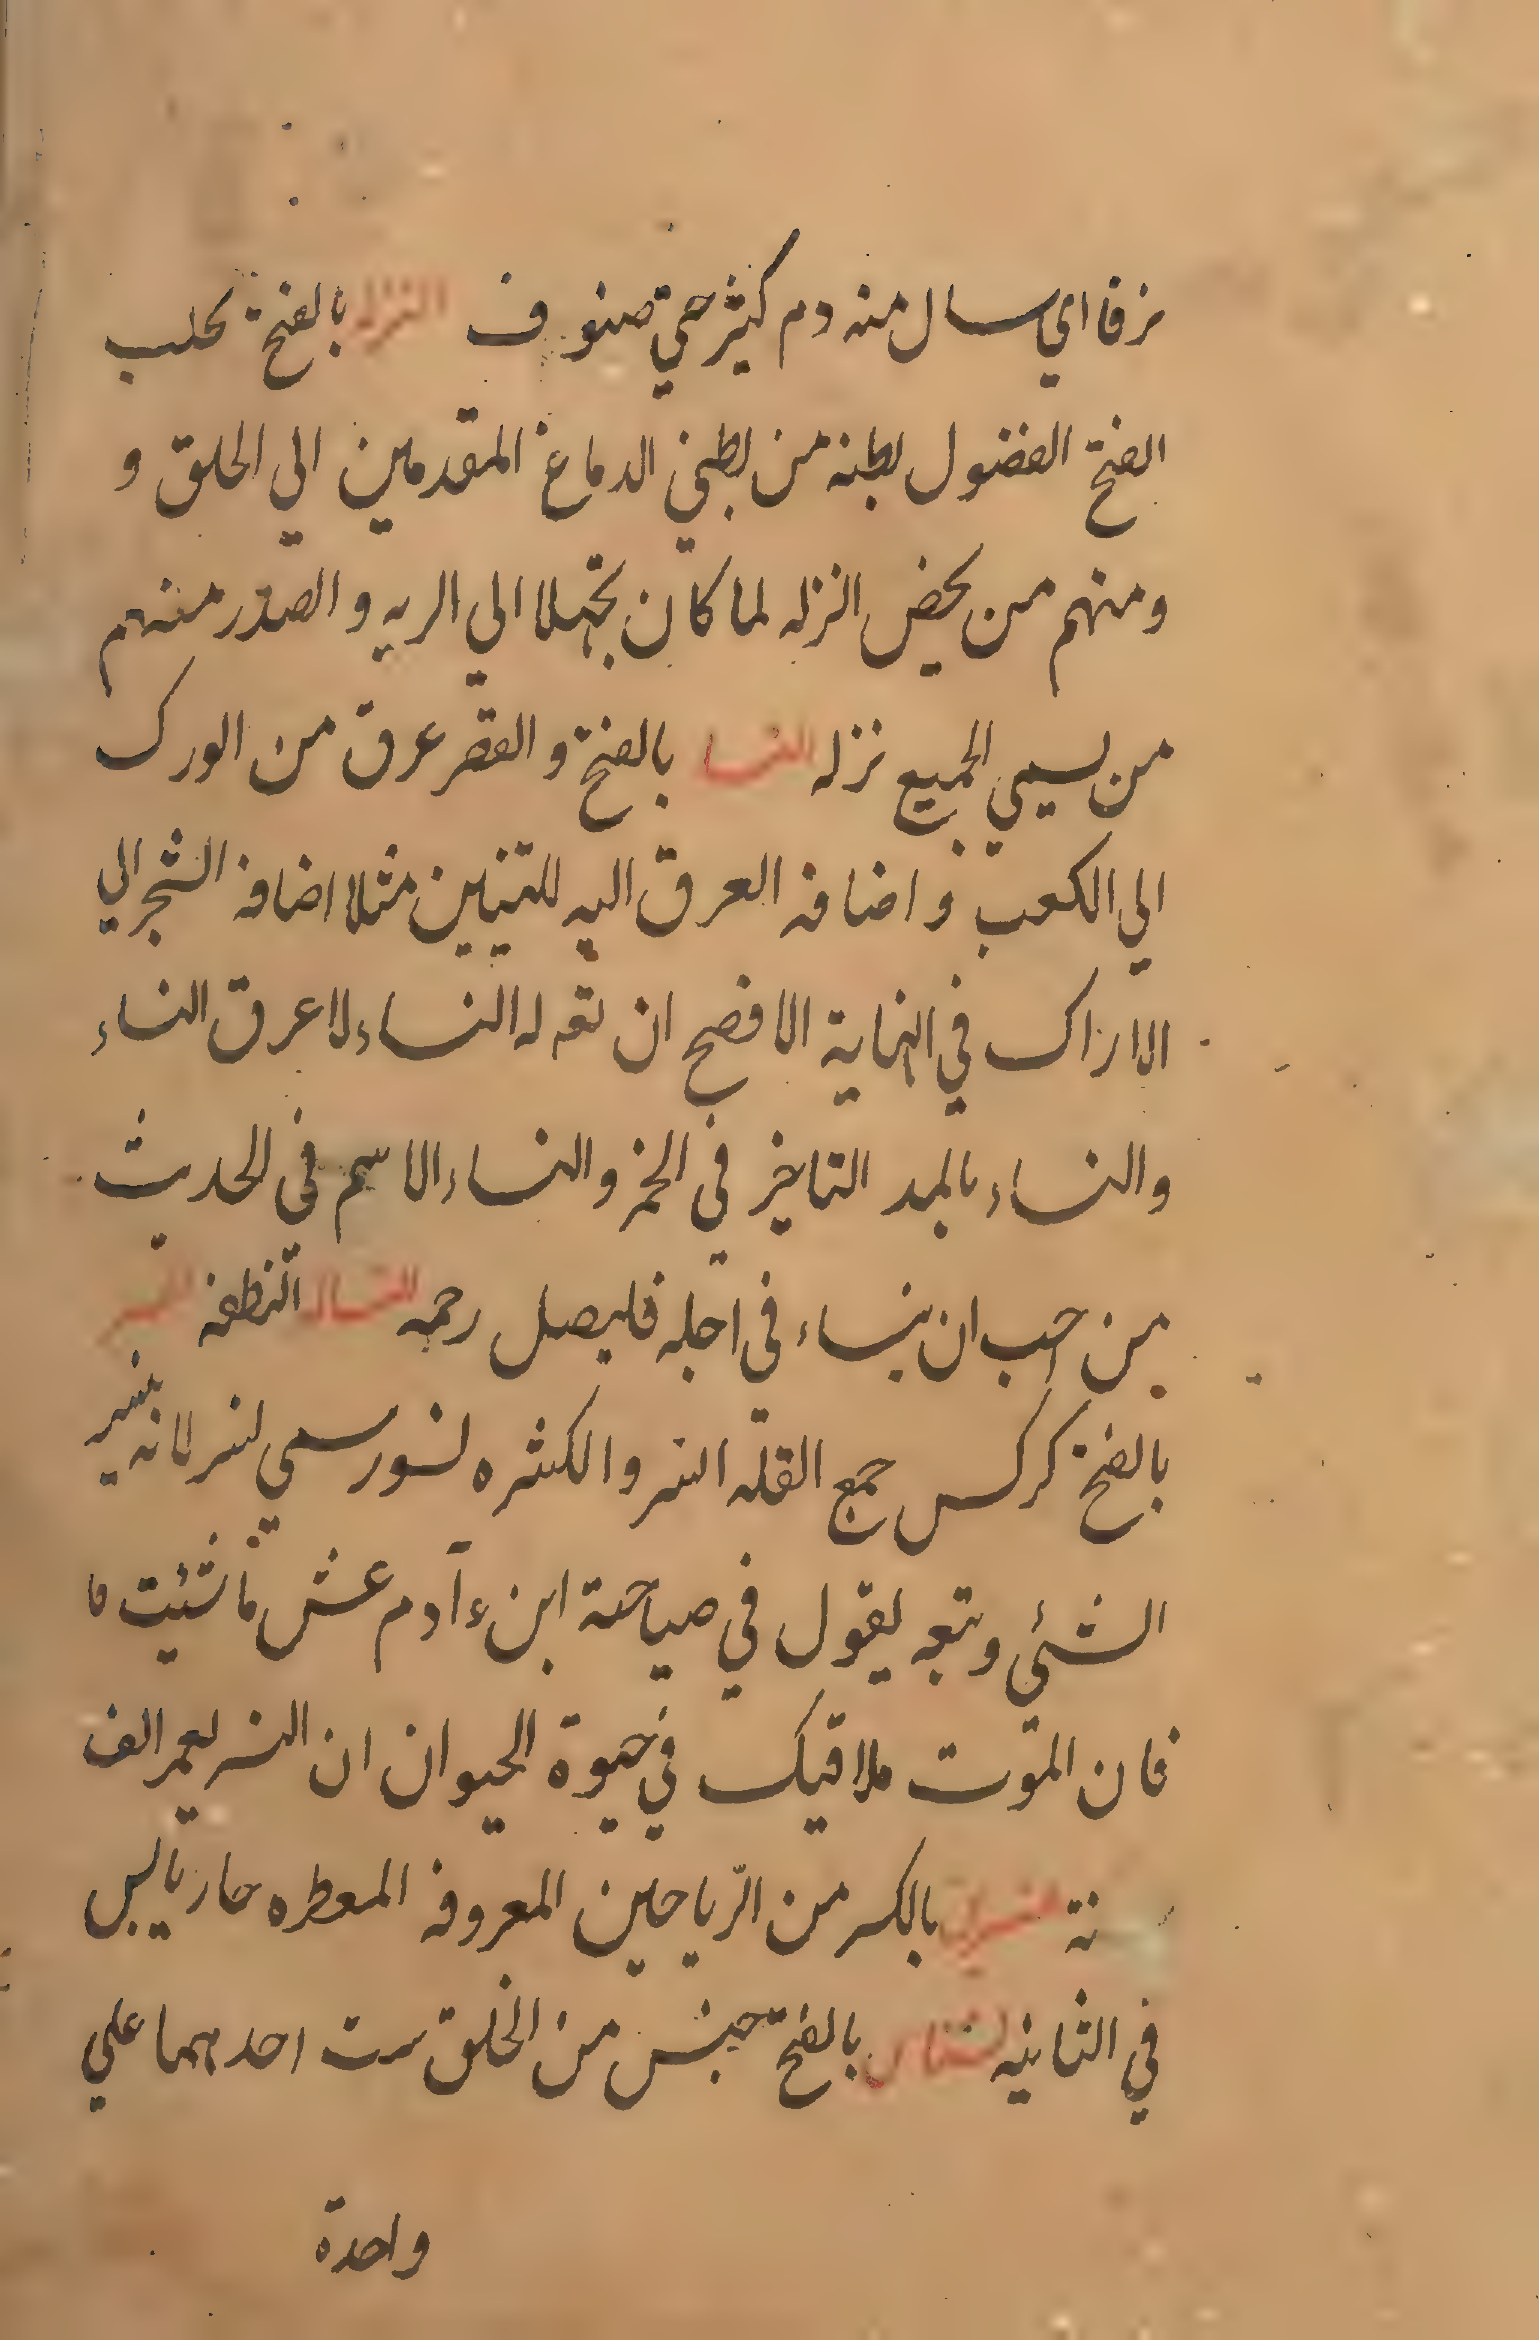 نزفا اي سال منه دم كثير حتي صنوف النزله بالفتح تحلب
الفتح الفضول لطبنه من لطبني الدماغ المقدمين الي الحلق و
ومنهم من يخض النزله لما كان الي الريه والصدر منهم
من يسمي الجميع نزله النسا بالفتح والقصر عرق من الورك
الي الكعب واضافه العرق اليه للتبيين مثلا اضافه الشجر الي
الاراك في النهاية الافصح ان يقه له النساء لا عرق النساء
والنساء بالمد التاخير في الخمر والنساء الاسم في الحديث
من احب ان ينساء في اجله فليصل رحمه النطفه النسر
بالفتح كركس جمع القلة انسر والكثره نسور سمي نسر لانه ينسر
الشئي ويتبعه يقول في صياحته ابن ءآدم عش ما شئت ما
فان الموت ملاقيك في حيوة الحيوان ان النسر يعمر الف
نة بالكسر من الرياحين المعروفه المعطره حار يابس
في الثانيه نسناس بالفتح جنس من الخلق ست احدهما علي
واحدة